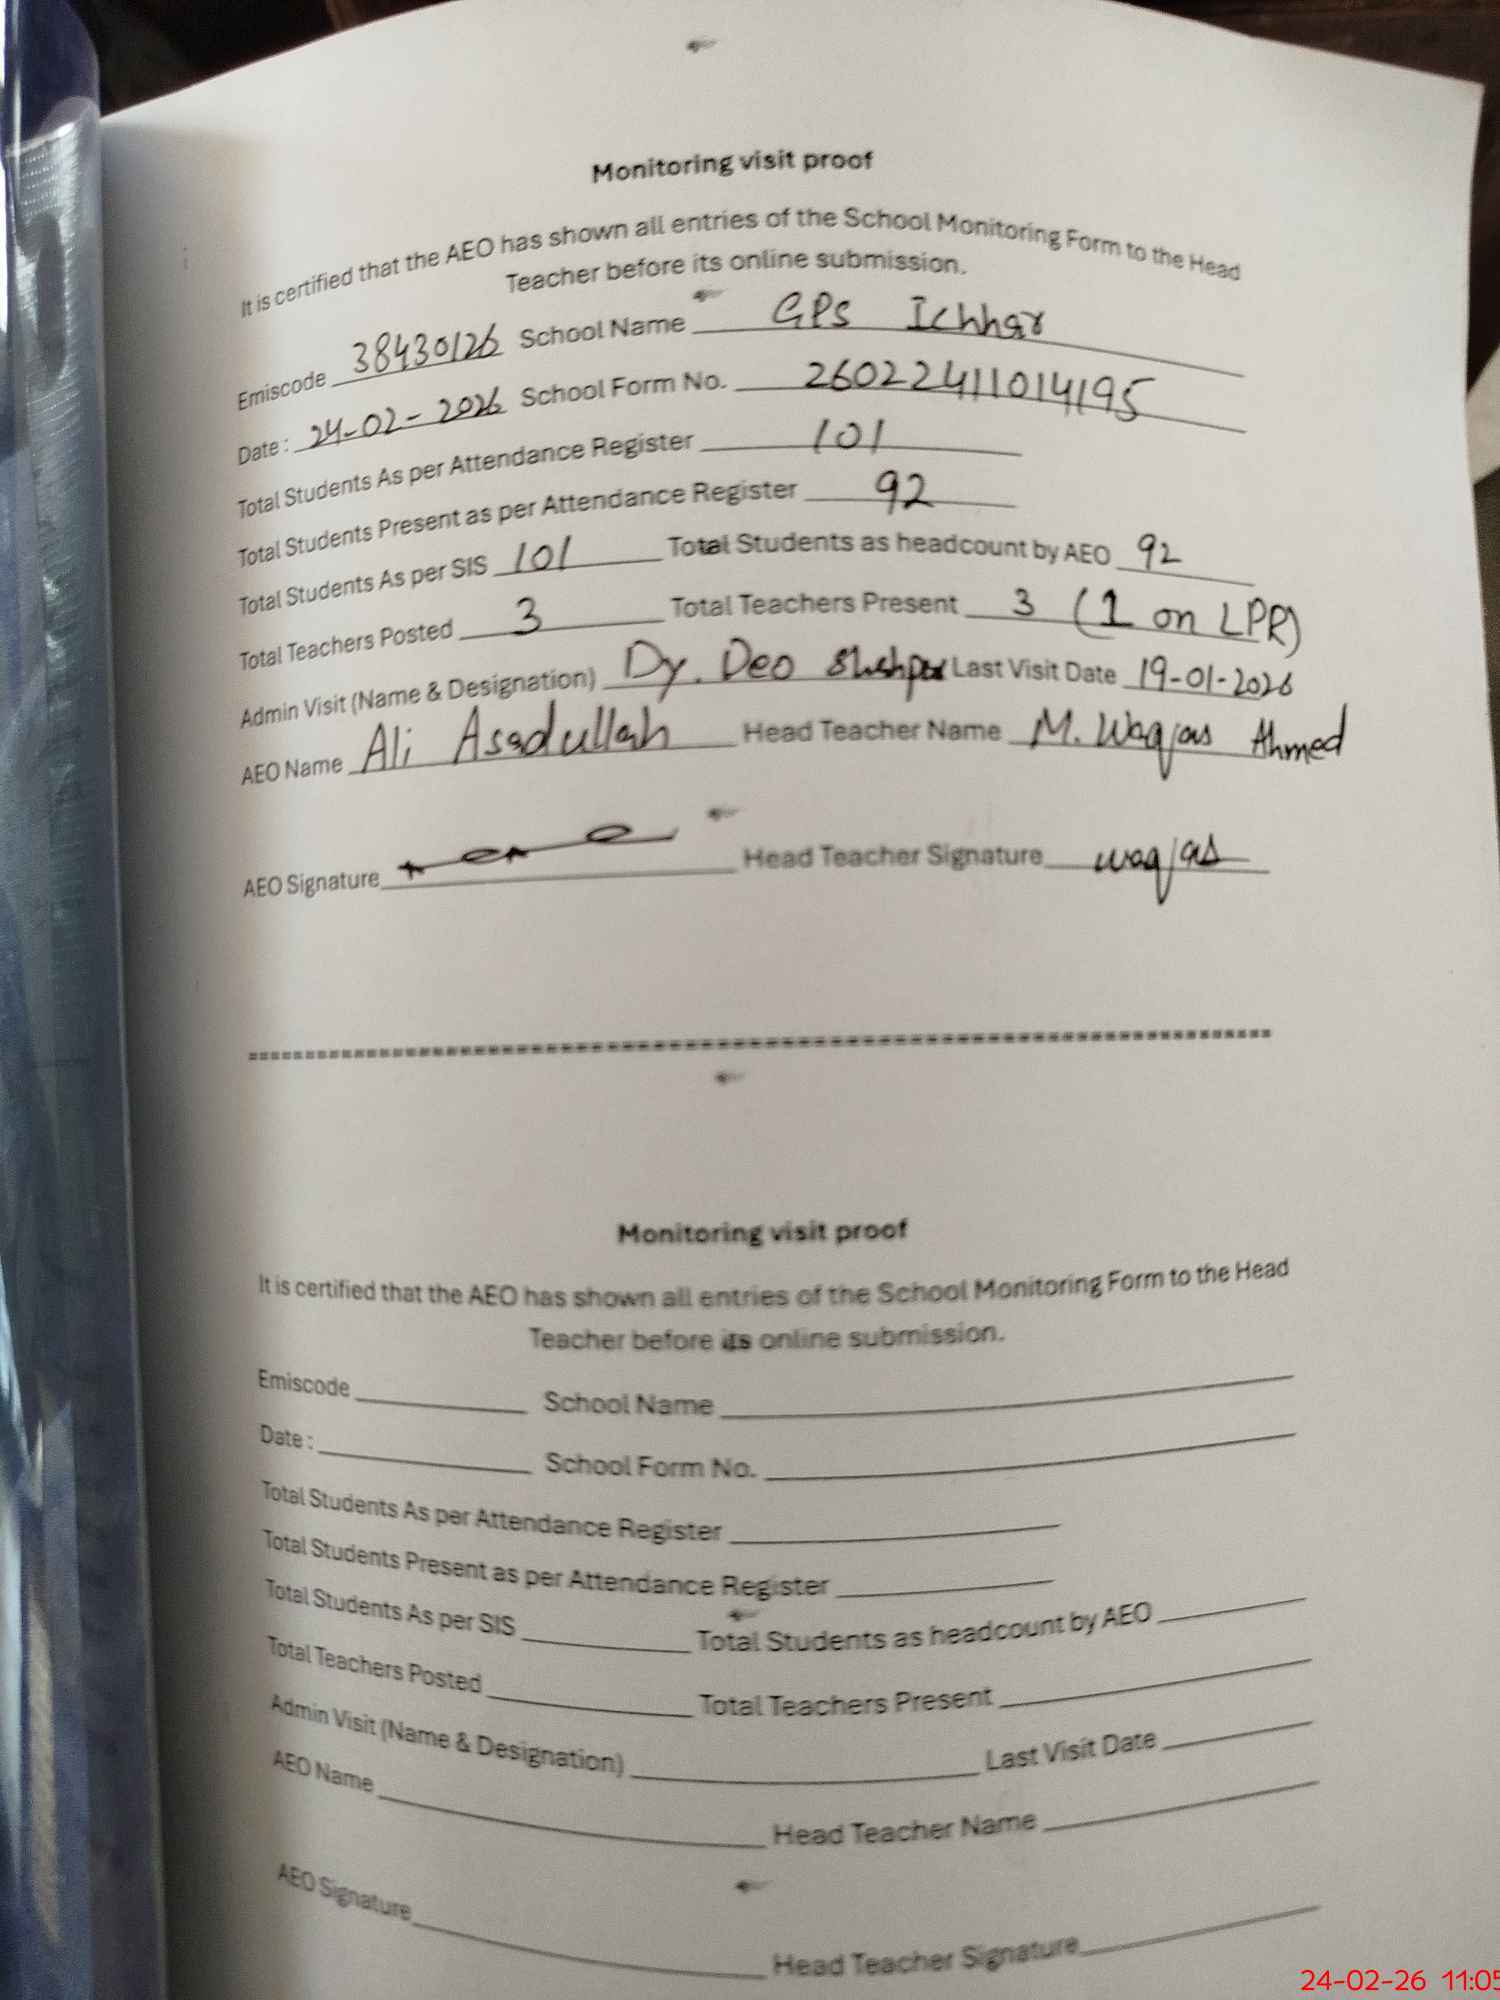 Monitoring visit proof
It is certified that the AEO has shown all entries of the School Monitoring Form to the Head
Teacher before its online submission.
Emiscode 38430126 School Name GPS Ichhar
Date : 24-02-2026 School Form No. 26022411014195
Total Students As per Attendance Register 101
Total Students Present as per Attendance Register 92
Total Students As per SIS 101 Total Students as headcount by AEO 92
Total Teachers Posted 3 Total Teachers Present 3 (1 on LPR)
Admin Visit (Name & Designation) Dy. Deo Last Visit Date 19-01-2026
AEO Name Ali Asadullah Head Teacher Name M. Waqas Ahmed
AEO Signature Head Teacher Signature waqas
Monitoring visit proof
It is certified that the AEO has shown all entries of the School Monitoring Form to the Head
Teacher before its online submission.
Emiscode School Name
Date : School Form No.
Total Students As per Attendance Register
Total Students Present as per Attendance Register
Total Students As per SIS Total Students as headcount by AEO
Total Teachers Posted Total Teachers Present
Admin Visit (Name & Designation) Last Visit Date
AEO Name Head Teacher Name
AEO Signature Head Teacher Signature
24-02-26 11:05